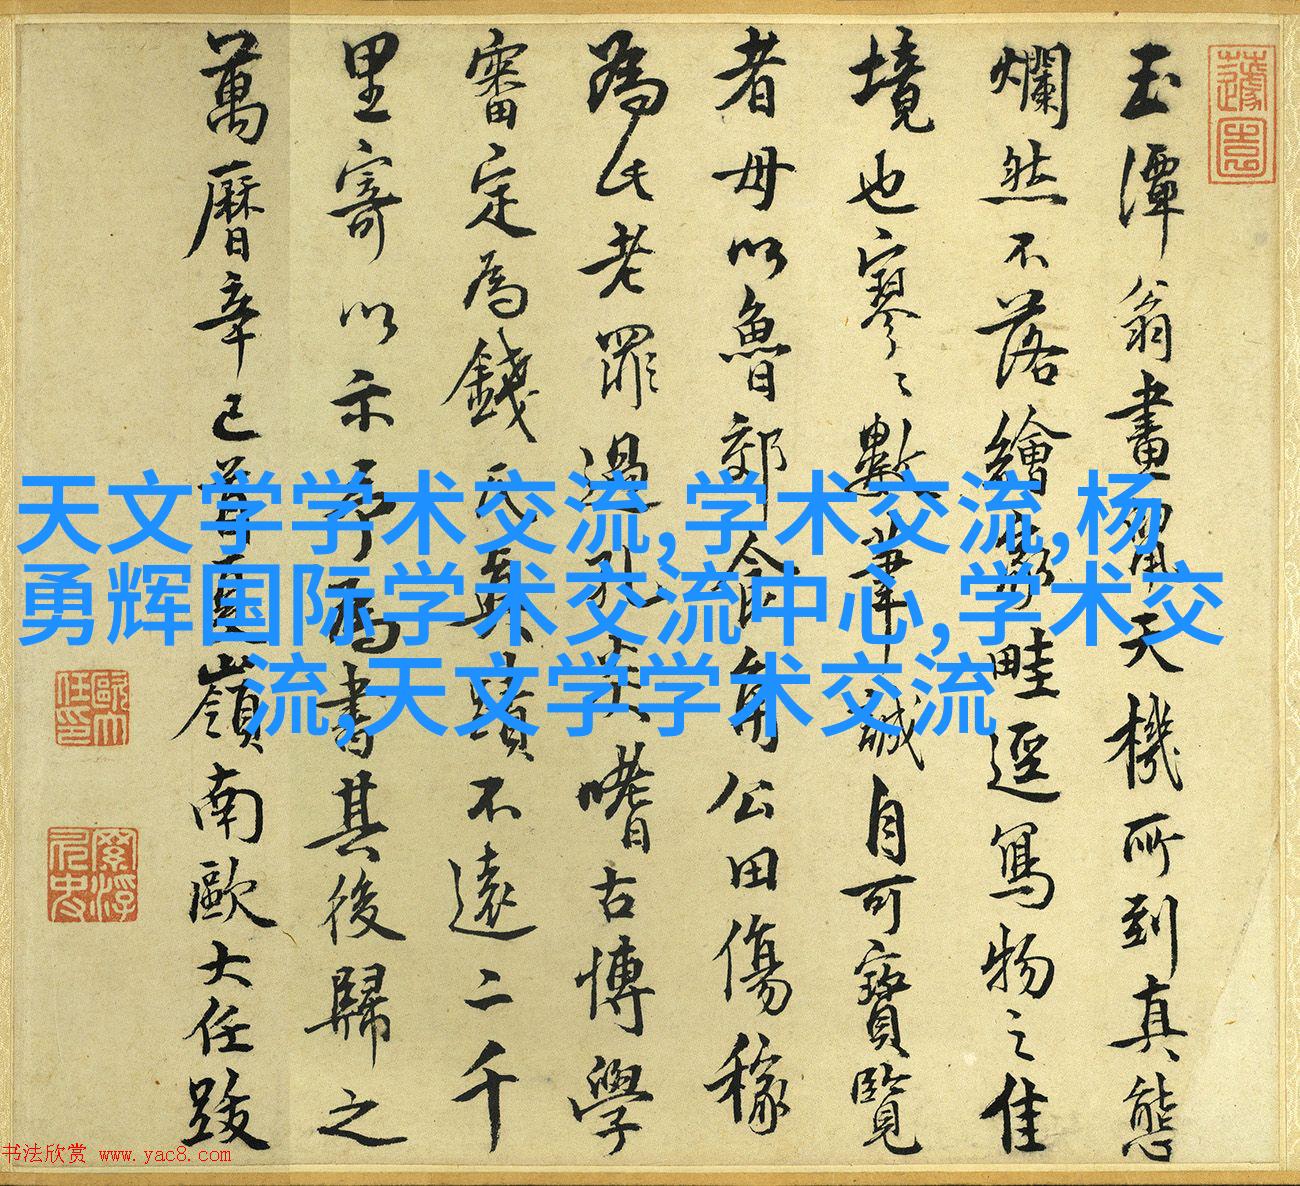 玉潭翁畫天機所到真態
爛然不落繪事畦逕寫物之佳
境也寥〻數筆誠自可寶覽
者毋以魯郊食角公田傷稼
為此老罪過孔炎嗜古博學
審定為錢氏真蹟不遠二千
里寄以示予為書其後歸之
萬曆辛巳首夏嶺南歐大任跋
歐大任印
天文学学术交流,学术交流,杨
勇辉国际学术交流中心,学术交
流,天文学学术交流
书法欣赏 www.yac8.com